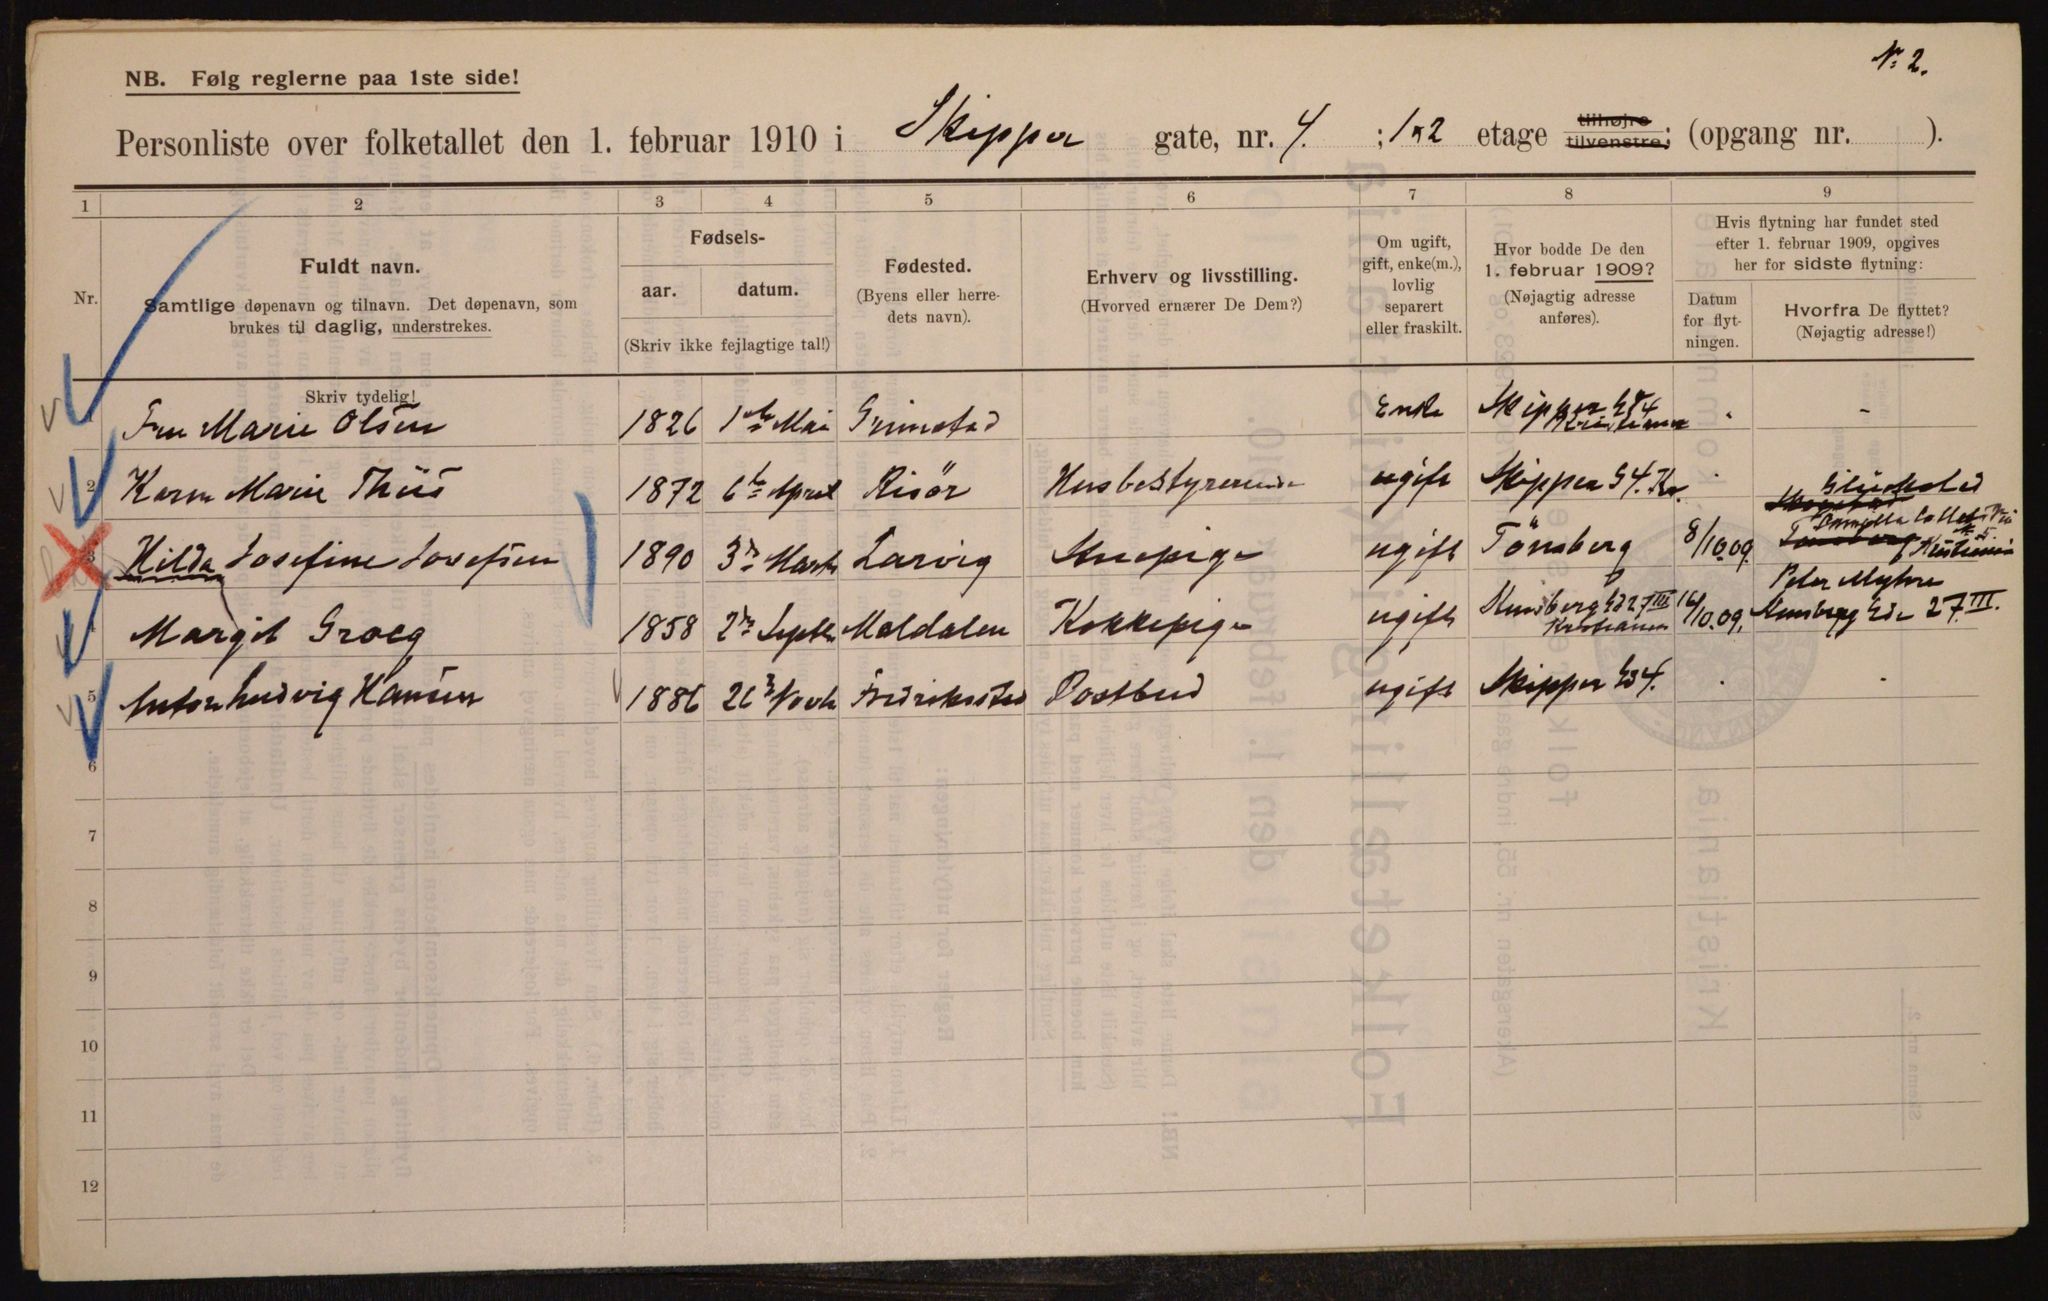 Nº 2.
NB. Følg reglerne paa 1ste side!
Personliste over folketallet den 1. februar 1910 i Skipper gate, nr. 4. ; 1 & 2 etage tilhøjre tilvenstre; (opgang nr. ).
1 2 3 4 5 6 7 8 9
Nr.
Fuldt navn.
Samtlige døpenavn og tilnavn. Det døpenavn, som
brukes til daglig, understrekes.
Skriv tydelig!
Fødsels-
aar. datum.
(Skriv ikke fejlagtige tal!)
Fødested.
(Byens eller herre-
dets navn).
Erhverv og livsstilling.
(Hvorved ernærer De Dem?)
Om ugift,
gift, enke(m.),
lovlig
separert
eller fraskilt.
Hvor bodde De den
1. februar 1909?
(Nøjagtig adresse
anføres).
Hvis flytning har fundet sted
efter 1. februar 1909, opgives
her for sidste flytning:
Datum
for flyt-
ningen.
Hvorfra De flyttet?
(Nøjagtig adresse!)
Fru Marie Olsen 1826 1ste Mai Grimstad Enke Skipper Gd 4 Kristiania
2 Karen Marie Thiis 1872 6te April Risör Husbestyrerinde ugift Skipper G 4. Kr.
3 Hilda Josefine Josefsen 1890 3de Marts Larvig Stuepige ugift Tönsberg 8/10.09. Kristiania
Margit Groeg 1858 2den Septbr Moldalen Kokkepige ugift Kunsberg Gd 27 III Kristiania 16/10.09. Peter Myhre 27 III.
5 Anton Ludvig Hansen 1886 26 Novbr Fredriksstad Postbud ugift Skipper Gd 4.
6
7
8
9
10
11
12